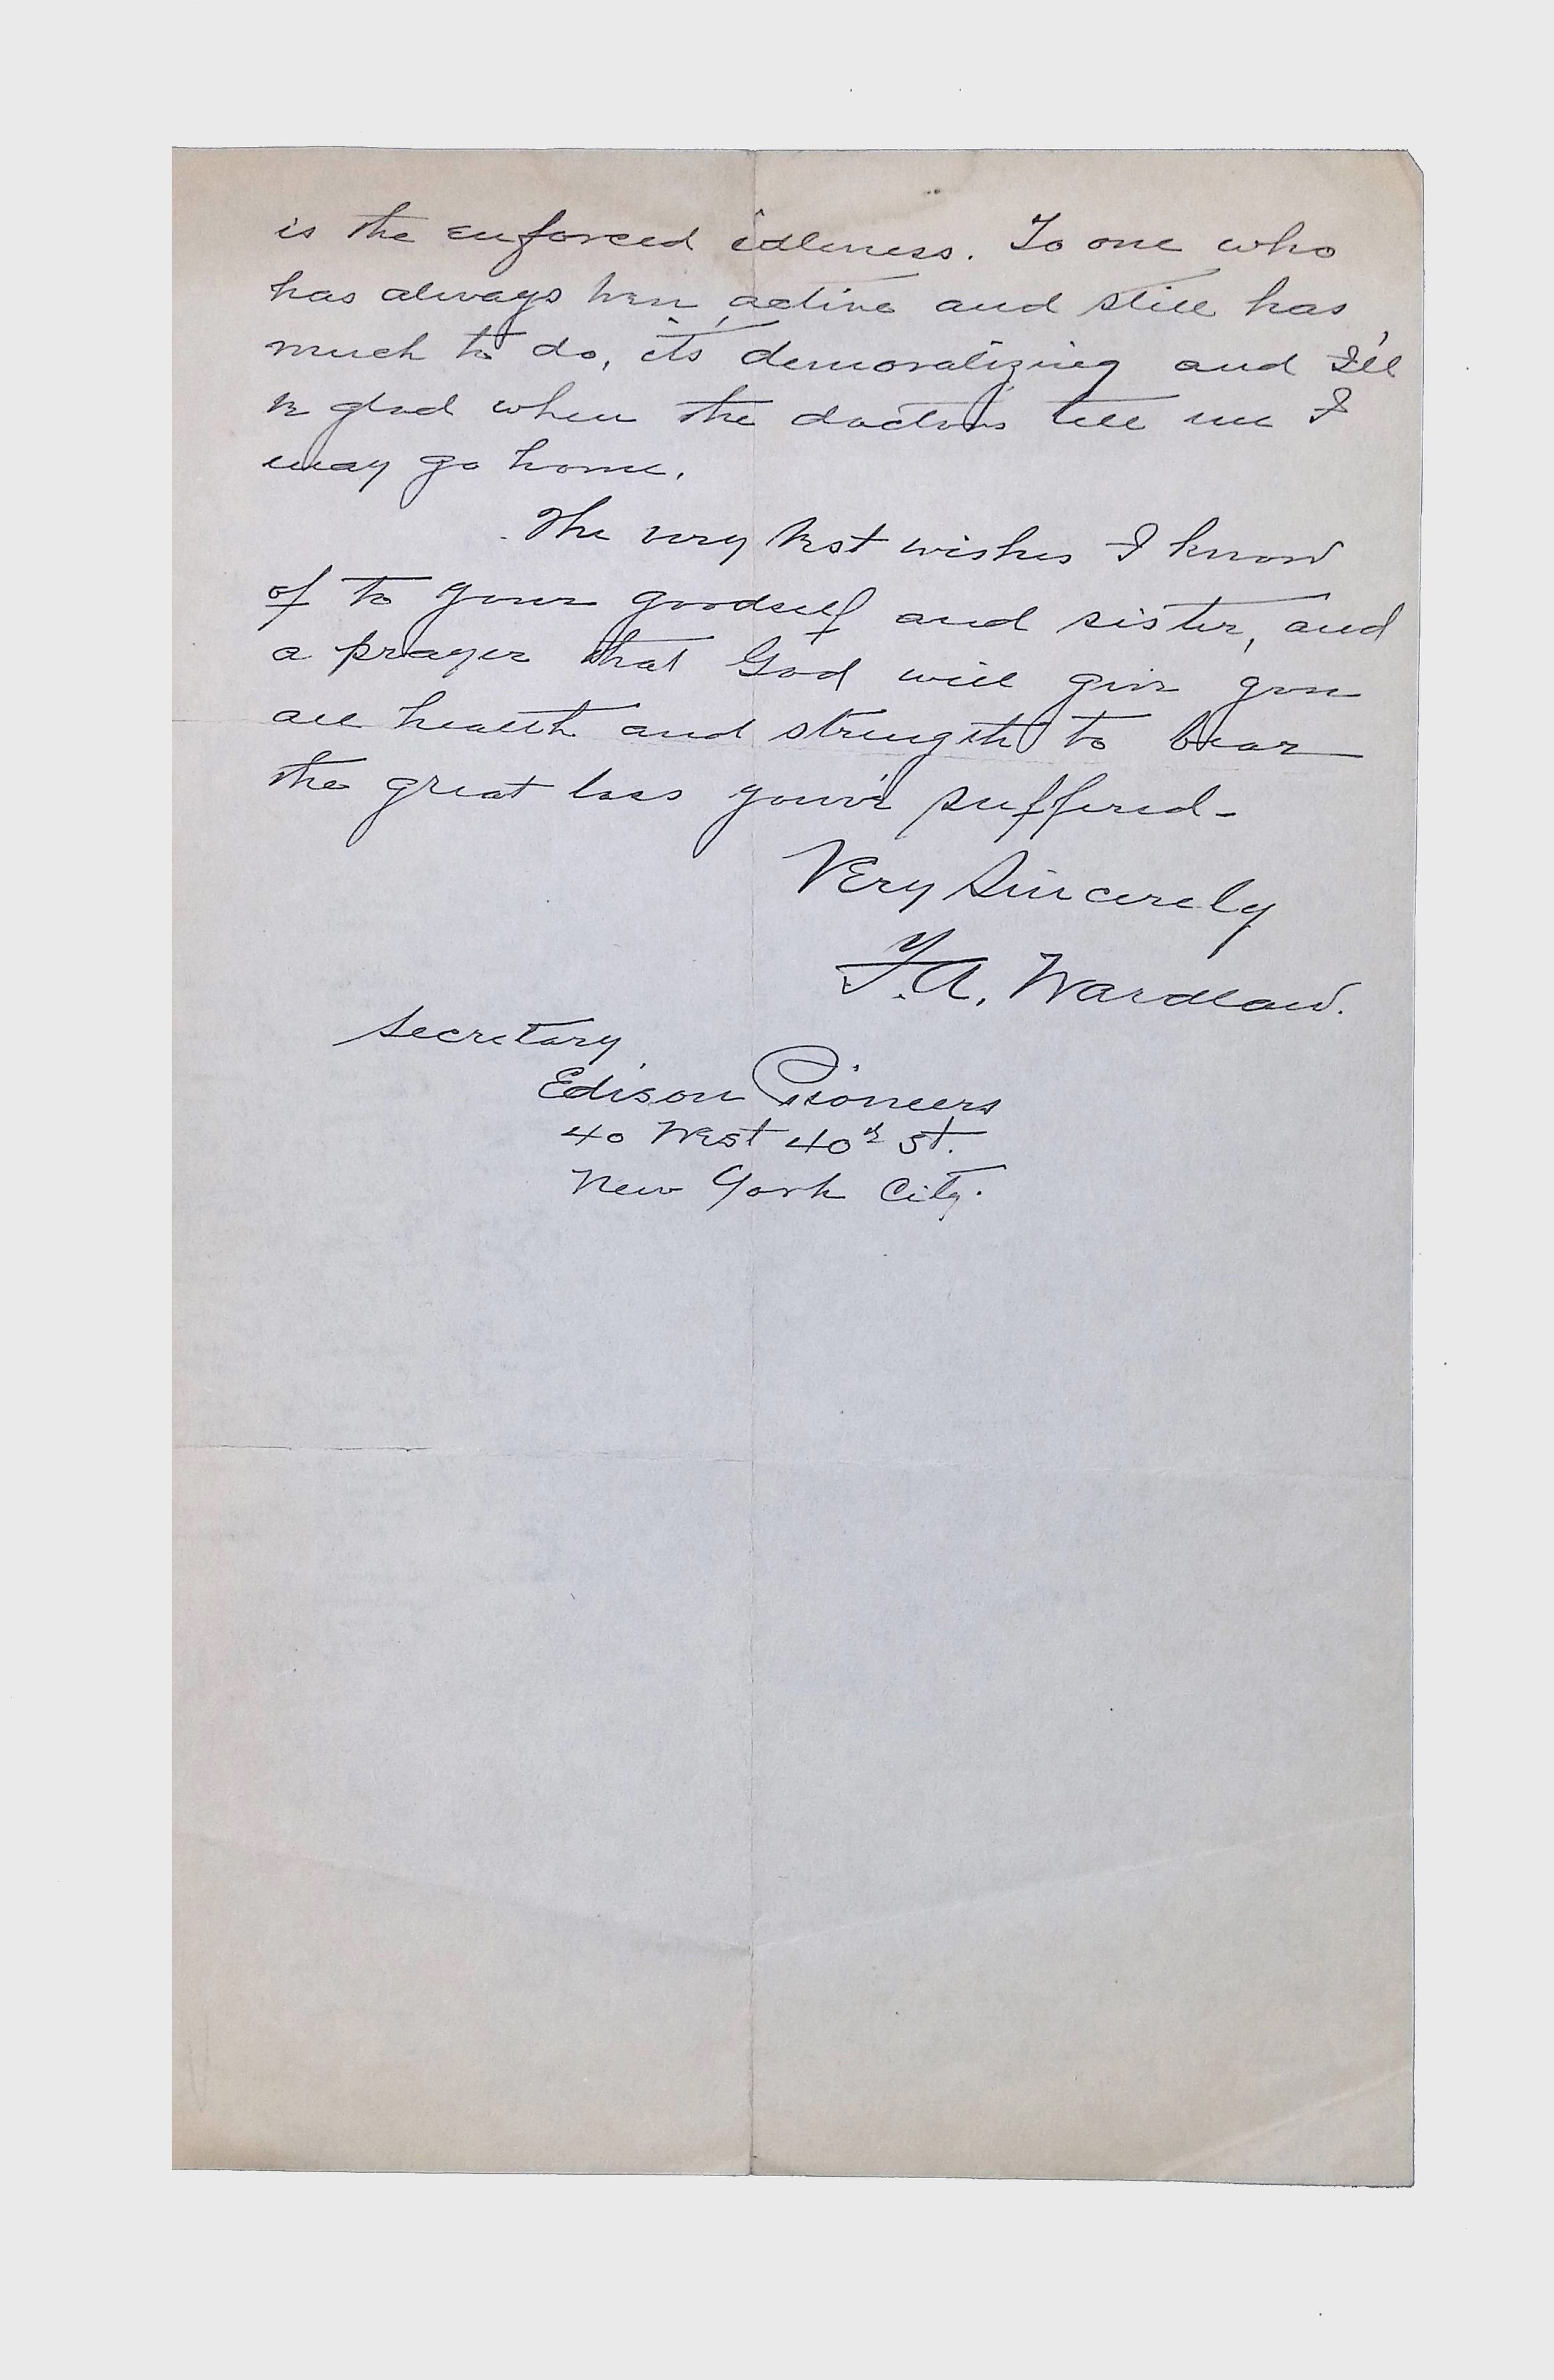 is the enforced idleness. To one who
has always been active and still has
much to do, it's demoralizing and I'll
be glad when the doctors tell me I
may go home.
The very best wishes I know
of to your goodself and sister, and
a prayer that God will give you
all health and strength to bear
the great loss you've suffered-
Very Sincerely
F.A. Wardlaw.
Secretary
Edison Pioneers
40 West 40th St.
New York City.